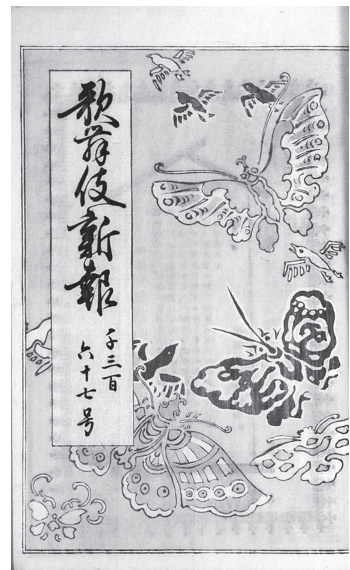 歌舞伎新報
千三百
六十七号